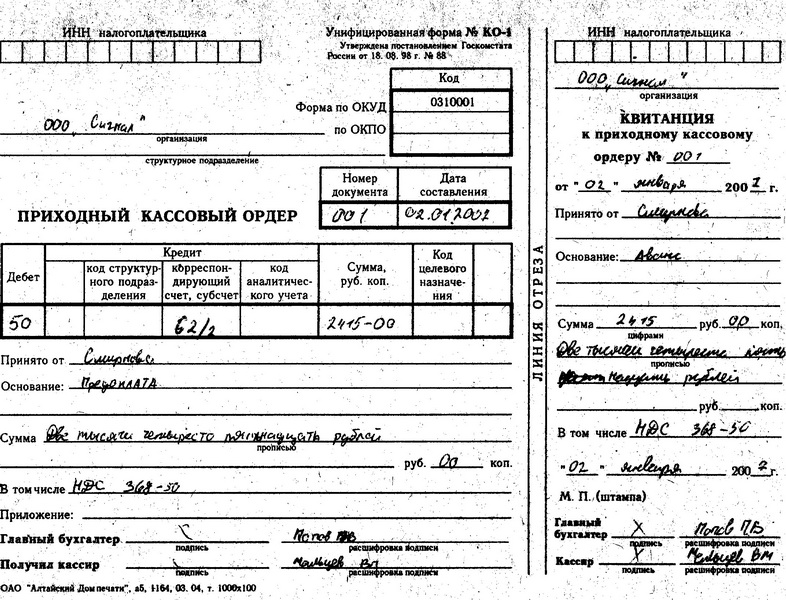 ИНН налогоплательщика
Унифицированная форма № КО-1
Утверждена постановлением Госкомстата
России от 18. 08. 98 г. № 88
Код
Форма по ОКУД 0310001
по ОКПО
ООО „Сигнал"
организация
структурное подразделение
Номер документа
Дата составления
ПРИХОДНЫЙ КАССОВЫЙ ОРДЕР
001
02.01.2002
Дебет
Кредит
код структурного подразделения
корреспондирующий счет, субсчет
код аналитического учета
Сумма, руб. коп.
Код целевого назначения
50
62/2
2415-00
Принято от Смирнова
Основание: Предоплата
Сумма Две тысячи четыресто пятнадцать рублей
прописью
руб. 00 коп.
В том числе НДС 368-50
Приложение:
Главный бухгалтер Х Попов ПВ
подпись расшифровка подписи
Получил кассир Мальцев ВМ
подпись расшифровка подписи
ОАО "Алтайский Дом печати", а5, 1164, 03. 04, т. 1000х100
ЛИНИЯ ОТРЕЗА
ИНН налогоплательщика
ООО „Сигнал"
организация
КВИТАНЦИЯ
к приходному кассовому
ордеру № 001
от "02" января 2002 г.
Принято от Смирнова
Основание: Аванс
Сумма 2415 руб. 00 коп.
цифрами
Две тысячи четыреста
прописью
рублей
руб. коп.
В том числе НДС 368-50
"02" января 2002 г.
М. П. (штампа)
Главный
бухгалтер Х Попов ПВ
подпись расшифровка подписи
Кассир Х Мальцев ВМ
подпись расшифровка подписи